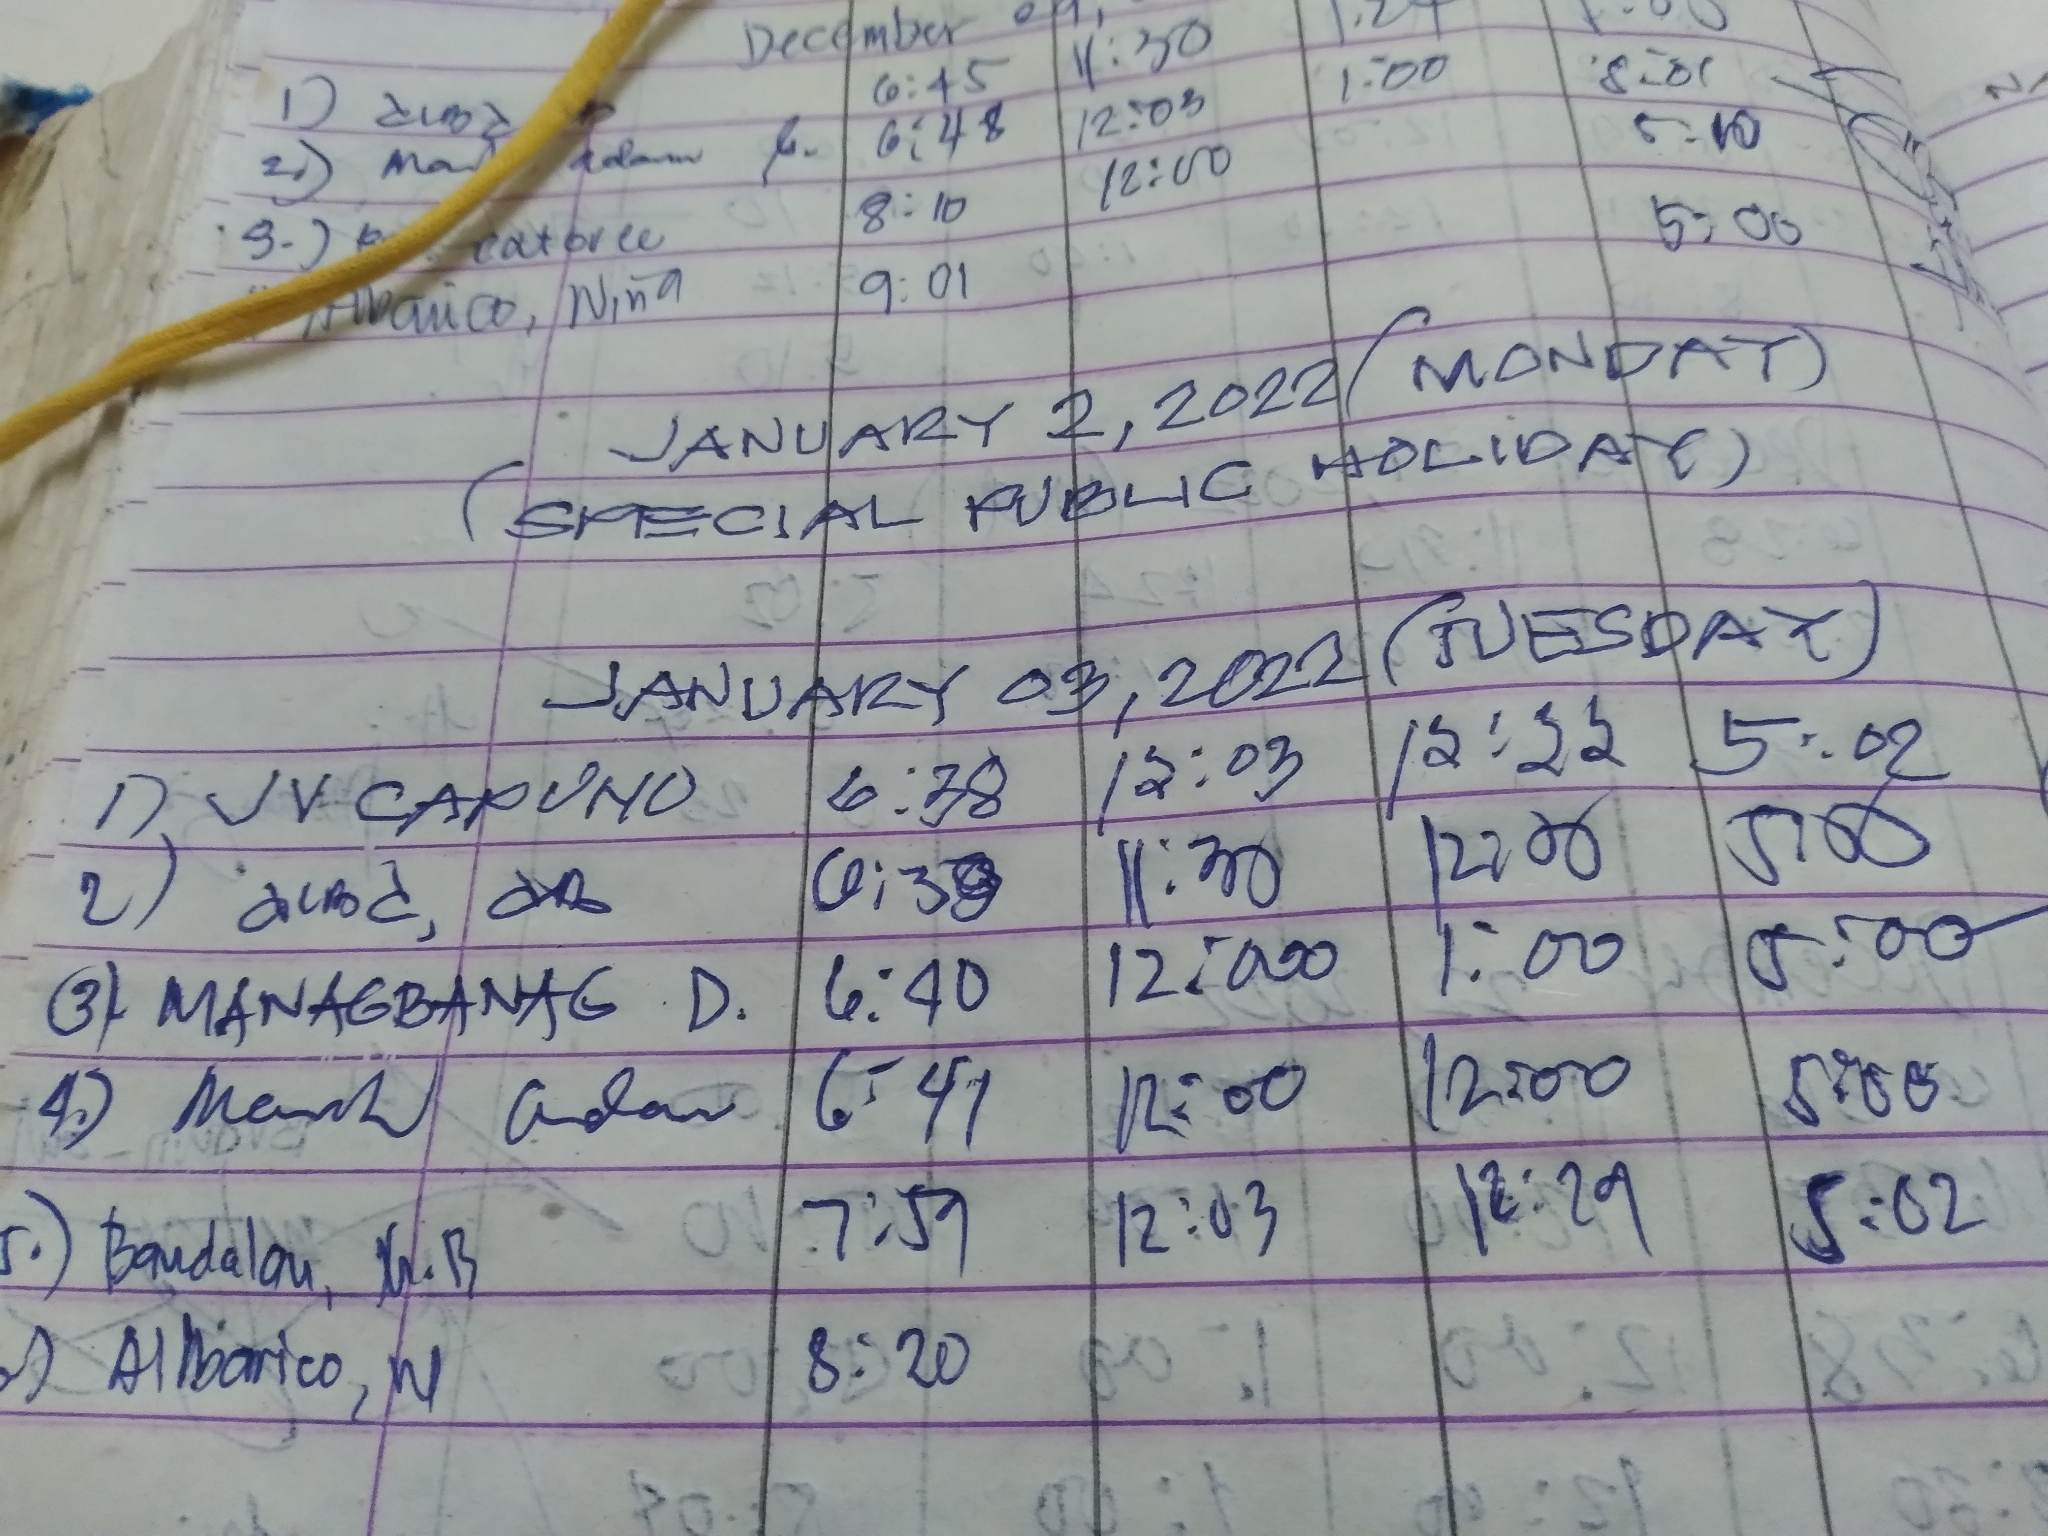 December 09,
1) 6:45 11:30 1:00 8:01
2.) 6:48 12:03 5:10
3.) catorce 8:10 12:00 5:00
Albarico, Niña 9:01
JANUARY 2, 2022 (MONDAY)
(SPECIAL PUBLIC HOLIDAY)
JANUARY 03, 2022 (TUESDAY)
1) JV CAPUNO 6:38 12:03 12:22 5:02
2) 11:30 12:00 5:00
3) MANAGBANAG D. 6:40 12:000 1:00 5:00
4.) Mark adam 6:41 12:00 12:00 5:00
5.) Bandalan, 7:59 12:03 12:29 5:02
) Albarico, N 8:20